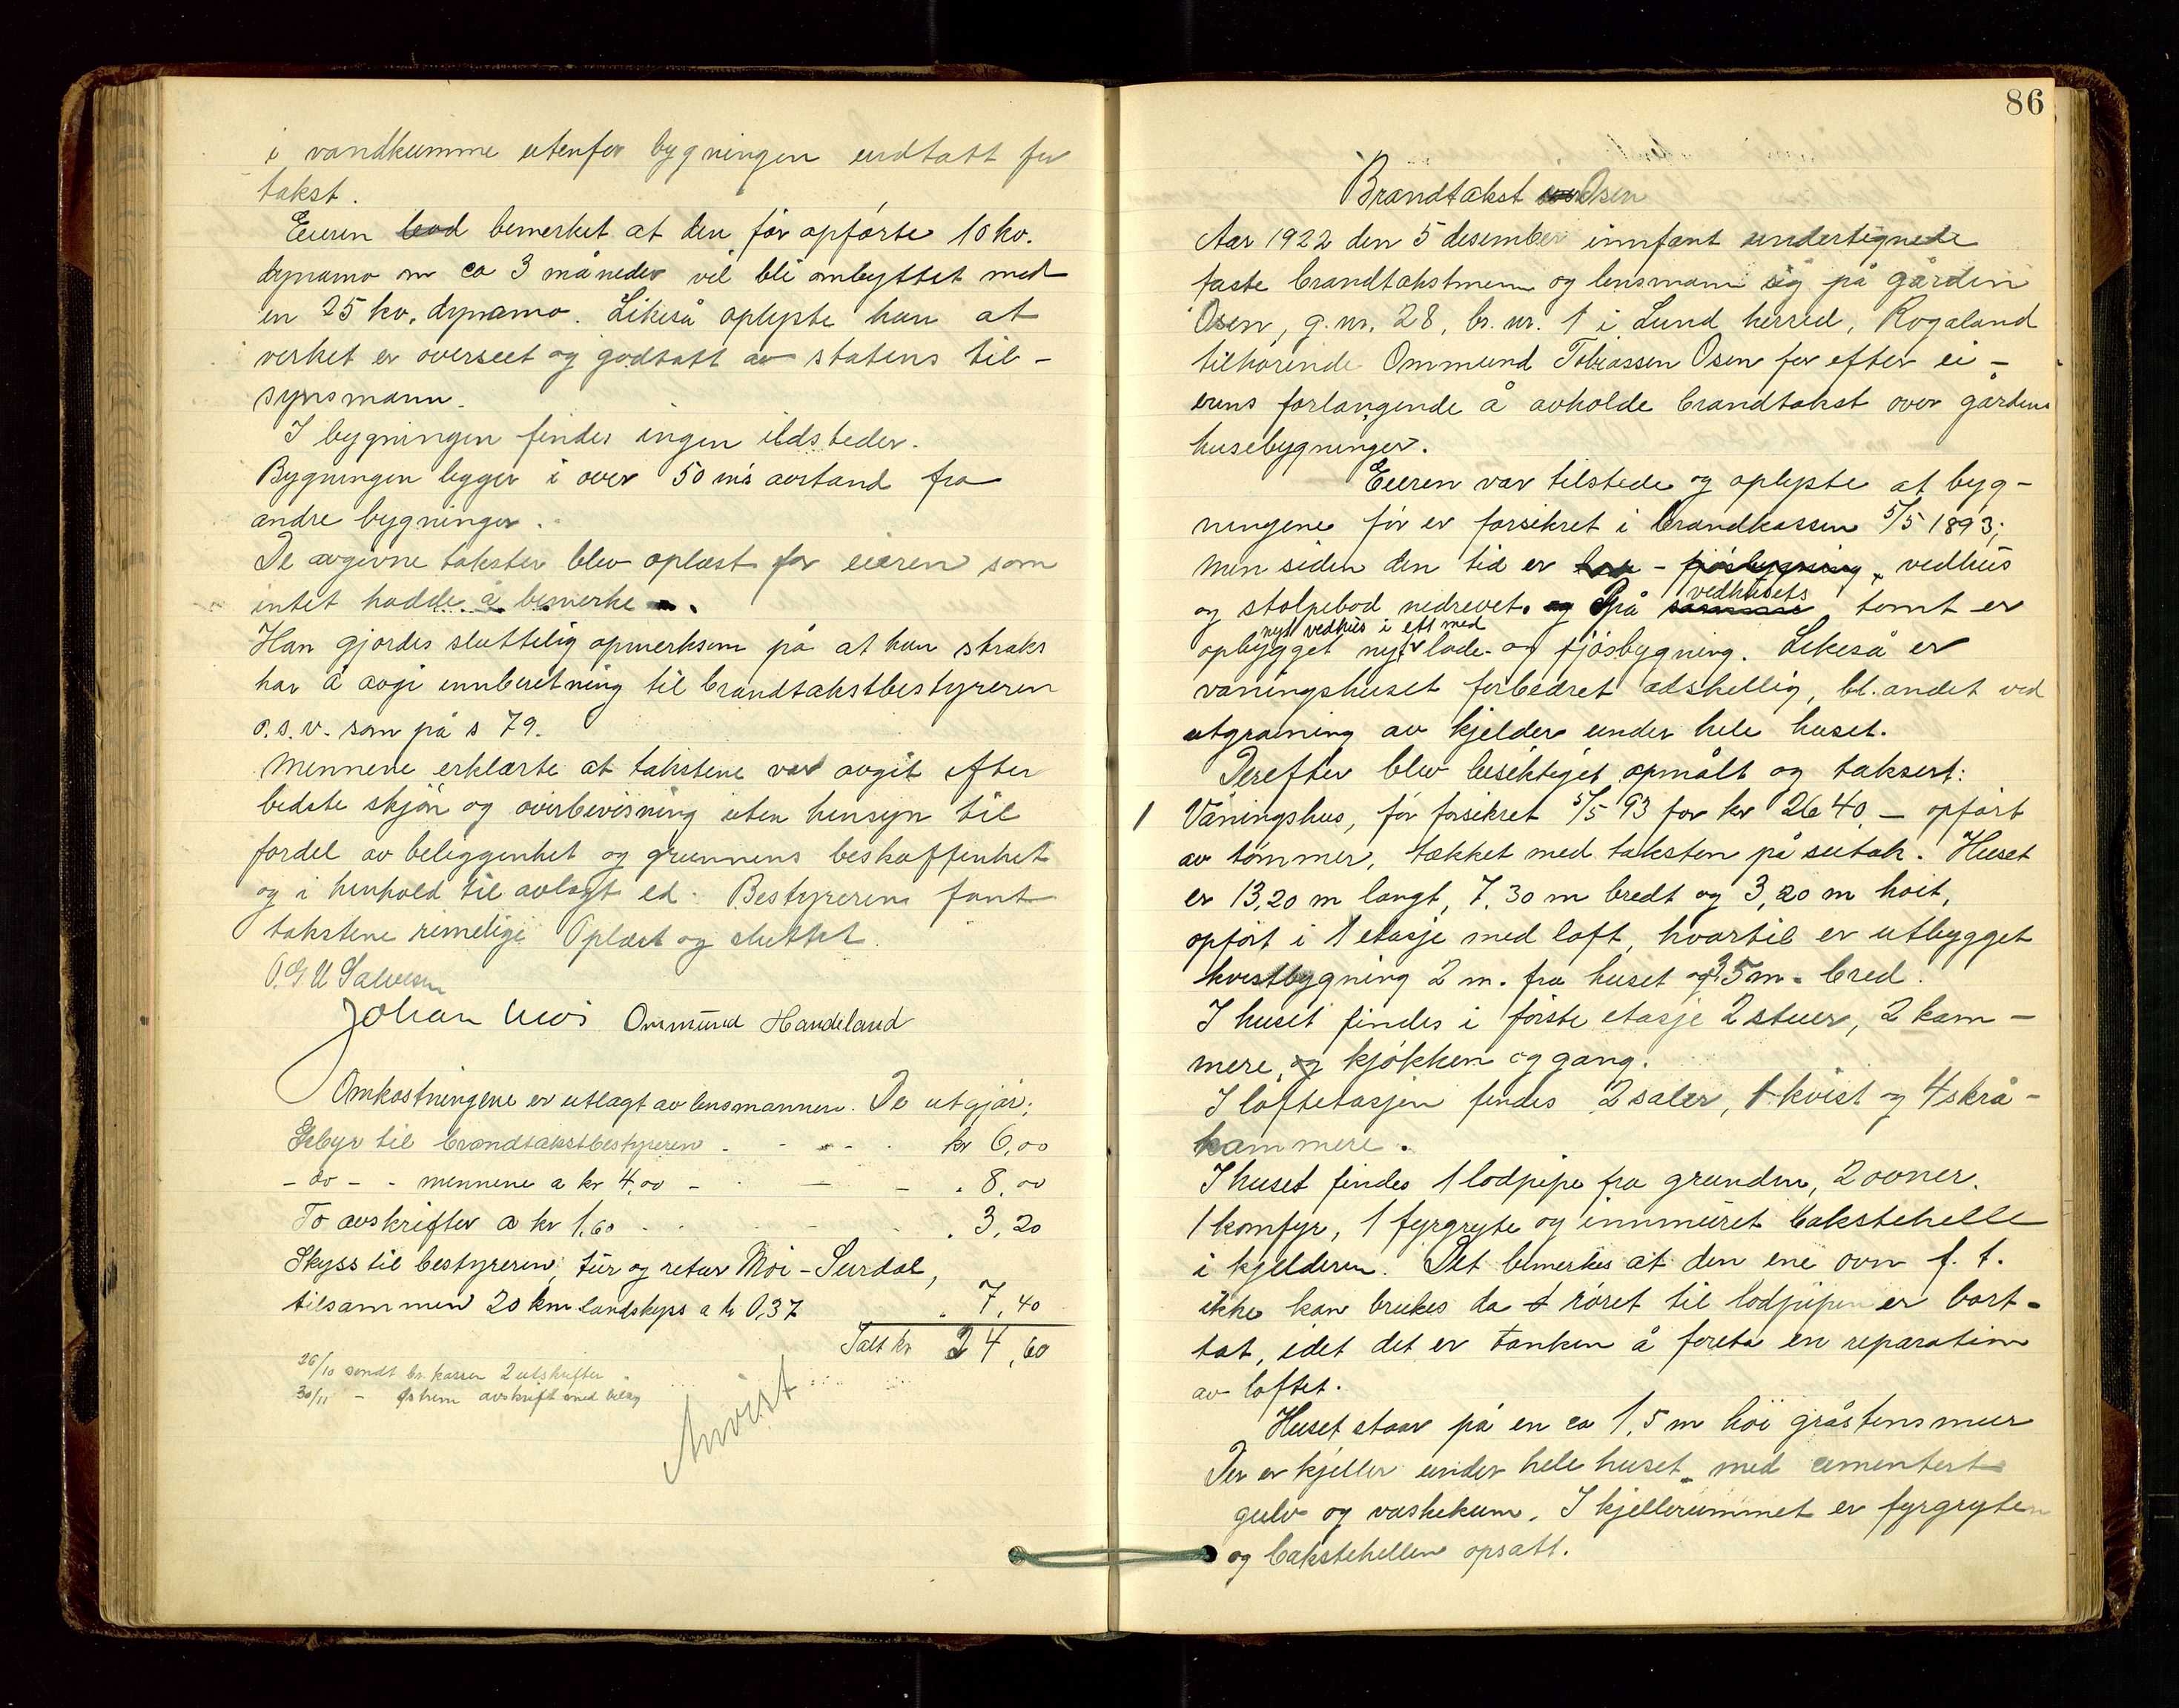 i vandkumme utenfor bygningen undtatt for
takst.
Eieren bemerket at den før opførte 10 kv.
dynamo om ca 3 måneder vil bli ombyttet med
en 25 kv. dynamo. Likeså oplyste han at
verket er overseet og godtatt av statens til-
synsmann.
I bygningen findes ingen ildsteder.
Bygningen ligger i over 50 m's avstand fra
andre bygninger.
De avgivne takster blev oplæst for eieren som
intet hadde å bemerke.
Han gjordes sluttelig opmerksom på at han straks
har å avgi innberetning til brandtakstbestyreren
o.s.v. som på s 79.
Mennene erklærte at takstene var avgit efter
bedste skjøn og overbevisning uten hensyn til
fordel av beliggenhet og grunnens beskaffenhet
og i henhold til avlagt ed. Bestyreren fant
takstene rimelige Oplæst og sluttet.
O. G. U Salvesen
Johan Moi Ommund Handeland
Omkostningene er utlagt av lensmannen. De utgjør:
Gebyr til brandtakstbestyreren - - - kr 6,00
- do - - mennene a kr 4,00 - - - . 8,00
To avskrifter a kr 1,60 - - . 3,20
Skyss til bestyreren, tur og retur Moi - Surdal,
tilsammen 20 km landskyss a kr 0,37 . 7,40
Ialt kr 24,60
26/10 sendt br. kassen 2 utskrifter
30/11 - avskrift med bilag
Anvist
86
Brandtakst Osen
Aar 1922 den 5 desember innfant undertegnede
faste brandtakstmenn og lensmann sig på gården
Osen, g.nr. 28, br. nr. 1 i Lund herred, Rogaland
tilhørende Ommund Tobiassen Osen for efter ei-
erens forlangende å avholde brandtakst over gårdens
husebygninger.
Eieren var tilstede og oplyste at byg-
ningene før er forsikret i brandkassen 5/5 1893;
men siden den tid er - fjøsbygning, vedhus
og stolpebod nedrevet. og På samme vedhusets tomt er
opbygget nyt vedhus i ett med ny lade- og fjøsbygning. Likeså er
våningshuset forbedret adskillig, bl. andet ved
utgravning av kjelder under hele huset.
Derefter blev besiktiget opmålt og taksert:
1 Våningshus, før forsikret 5/5 93 for kr 2640 - opført
av tømmer, tækket med taksten på sutak. Huset
er 13,20 m langt, 7,30 m bredt og 3,20 m høit,
opført i 1 etasje med loft, hvortil er utbygget
kvistbygning 2 m. fra huset og 3,5 m. bred.
I huset findes i første etasje 2 stuer, 2 kam-
mere, og kjøkken og gang.
I loftetasjen findes 2 saler, 1 kvist og 4 skrå-
kammere.
I huset findes 1 lodpipe fra grunden, 2 ovner.
1 komfyr, 1 fyrgryte og innmuret bakstehelle
i kjelderen. Det bemerkes at den ene ovn f. t.
ikke kan brukes da røret til lodpipen er bort-
tat, idet det er tanken å foreta en reparation
av loftet.
Huset staar på en ca 1,5 m høi gråstensmur
Der er kjeller under hele huset, med cementert
gulv og vaskekum. I kjellerummet er fyrgryten
og bakstehellen opsatt.